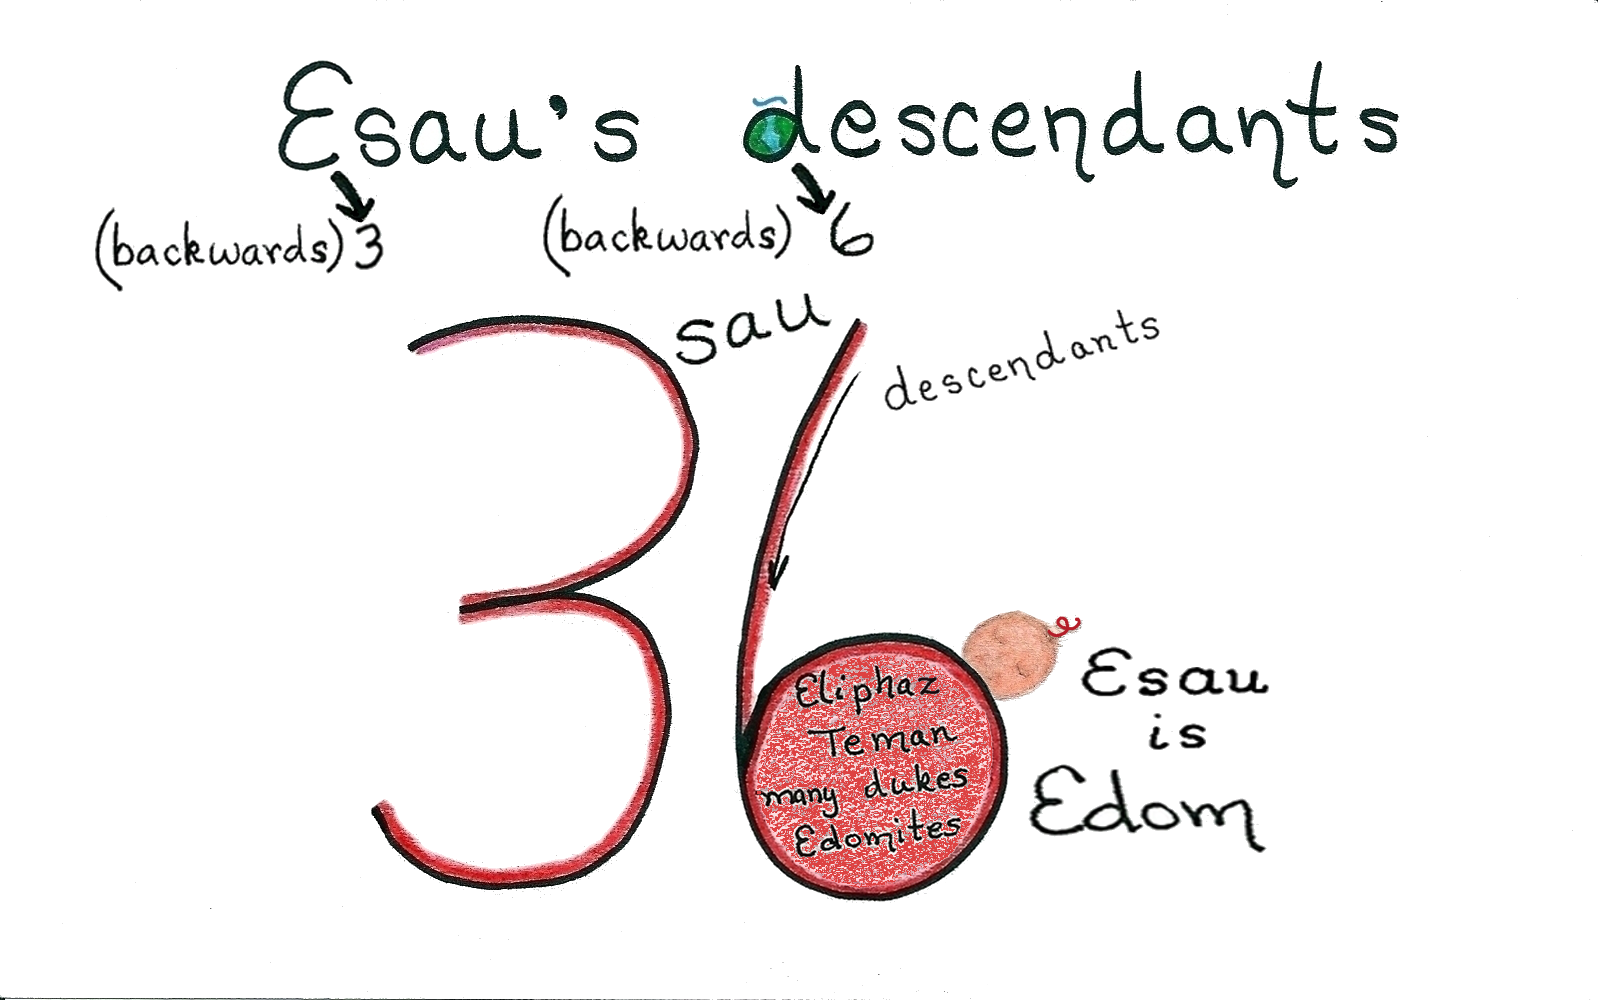 Esau's descendants
(backwards) 3 (backwards) 6
36
sau
descendants
Eliphaz
Teman
many dukes
Edomites
Esau
is
Edom